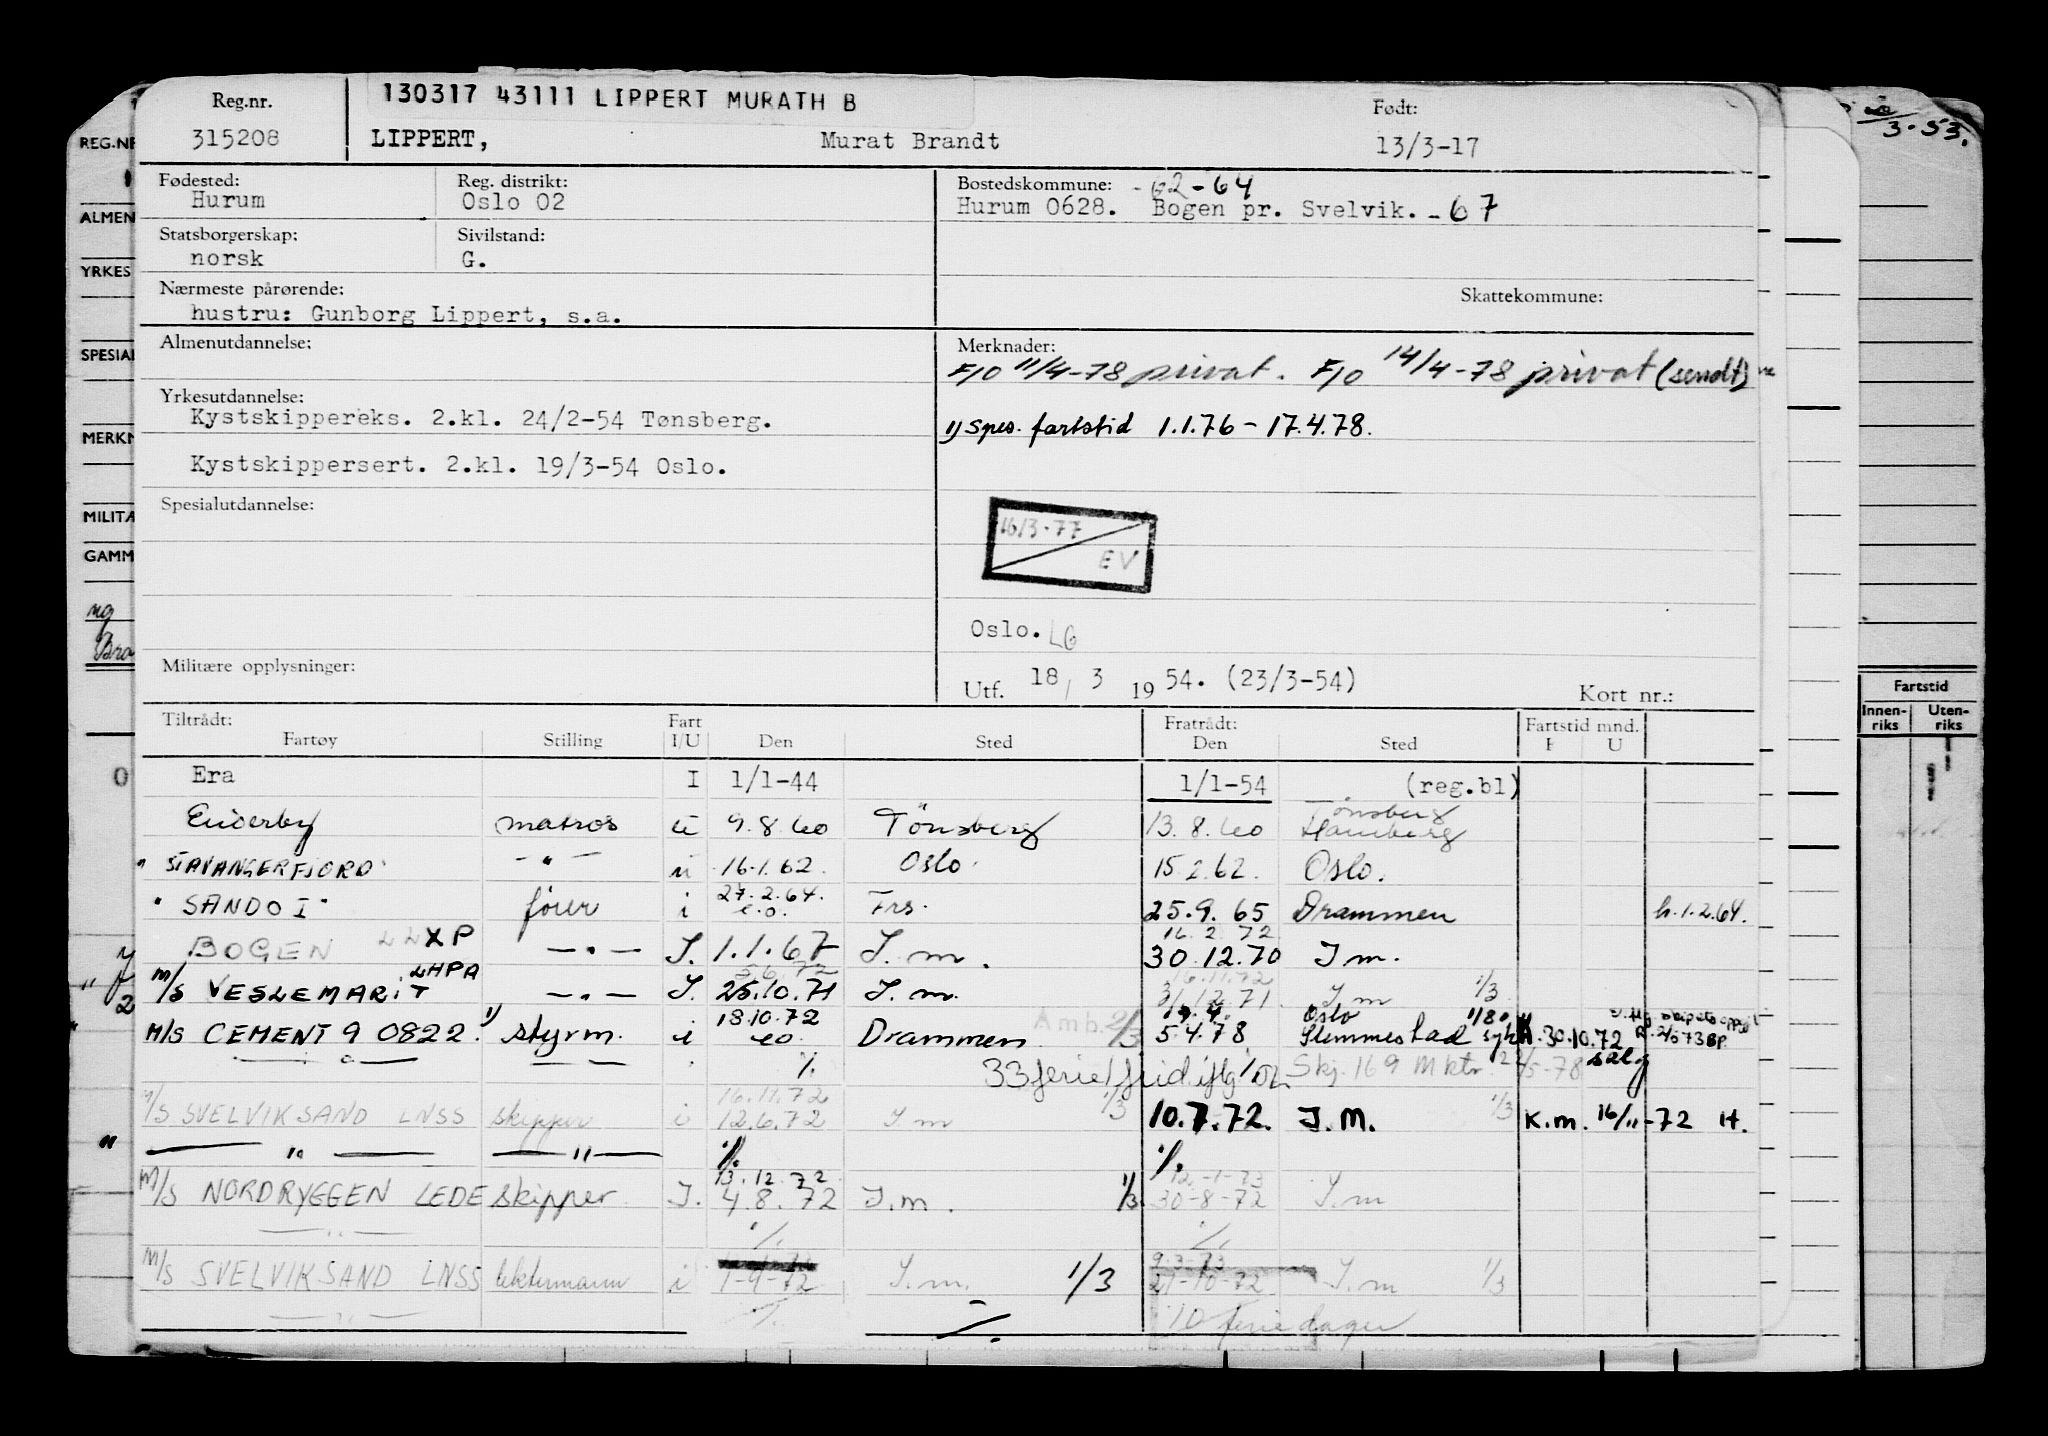 130317 43111 LIPPERT MURATH B
Reg.nr. Født:
315208 LIPPERT, Murat Brandt 13/3-17
Fødested: Reg. distrikt: Bostedskommune: -62-64
Hurum Oslo 02 Hurum 0628. Bogen pr. Svelvik. -67
Statsborgerskap: Sivilstand:
norsk G.
Nærmeste pårørende: Skattekommune:
hustru: Gunborg Lippert, s.a.
Almenutdannelse: Merknader:
F/O 11/4-78 privat. F/O 14/4-78 privat (sendt)
Yrkesutdannelse:
Kystskippereks. 2.kl. 24/2-54 Tønsberg.
1) Spes. fartstid 1.1.76 - 17.4.78.
Kystskippersert. 2.kl. 19/3-54 Oslo.
Spesialutdannelse:
16/3-77
EV
Oslo. LG
Militære opplysninger:
Utf. 18/3 1954. (23/3-54) Kort nr.:
Tiltrådt: Fart Fratrådt: Fartstid mnd.
Fartøy Stilling I/U Den Sted Den Sted I U
Era I 1/1-44 1/1-54 (reg.bl)
Tønsberg
Enderby matros u 9.8.60 Tönsberg 13.8.60 Hamburg
"STAVANGERFJORD" -"- u 16.1.62. Oslo. 15.2.62. Oslo.
27.2.64.
"SANDO I" fører i e.o. Frs. 25.9.65 Drammen h.1.2.64.
16.2.72
BOGEN LLXP -"- I. 1.1.67 I.m. 30.12.70 I m.
LHPA 16.11.72
M/S VESLEMARIT -"- I. 25.10.71 I.m. 31.12.71. I m 1/3
18.10.72 Oslo 1/80
M/S CEMENT 9 0822. 1) styrm. i eo. Drammen Amb. 2/3 5.4.78 Slemmestad syk A. 30.10.72
-"- -"- ·/. 33 ferie/frid. iflg. Skj. 169 M ktr. 22/5-78 salg
16.11.72
M/S SVELVIKSAND LNSS skipper i 12.6.72 I m 1/3 10.7.72. I.M. 1/3 K.m. 16/11-72 H.
-"- -"- ·/. ·/.
13.12.72 12.-1-73
M/S NORDRYGGEN LEDE skipper I. 4.8.72 I.m. 1/3 30-8-72 I.m
-"- ·/. ·/.
9.3.73
M/S SVELVIKSAND LNSS lektermann i 1-9-72 I.m. 1/3 27-10-72 I.m 1/3
-"- ·/. ·/. 10 feriedager
REG.NR
ALMEN
YRKES
SPESIAL
MERKN
MILITÆ
GAMM
Fartstid
Innen-riks Uten-riks
3.53.